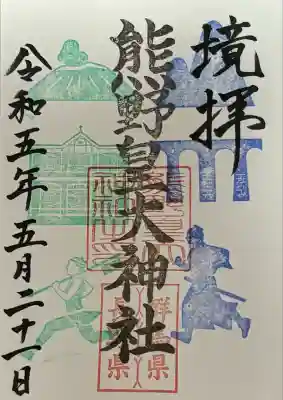 境拝
熊野皇大神社
令和五年五月二十一日
群馬県
長野県